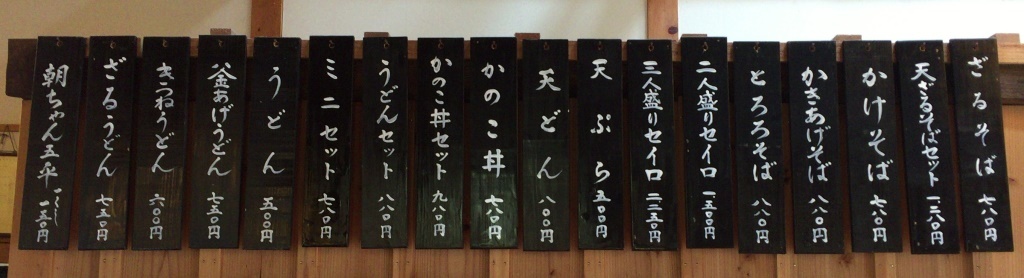 ざるそば 七八〇円
天ざるそばセット 一三八〇円
かけそば 七八〇円
かきあげそば 八八〇円
とろろそば 八八〇円
二人盛りセイロ 一五〇〇円
三人盛りセイロ 二二五〇円
天ぷら 五〇〇円
天どん 八〇〇円
かのこ丼 七八〇円
かのこ丼セット 九八〇円
うどんセット 八八〇円
ミニセット 七八〇円
うどん 五〇〇円
釜あげうどん 七五〇円
きつねうどん 六〇〇円
ざるうどん 七五〇円
朝ちゃん五平 一五〇円